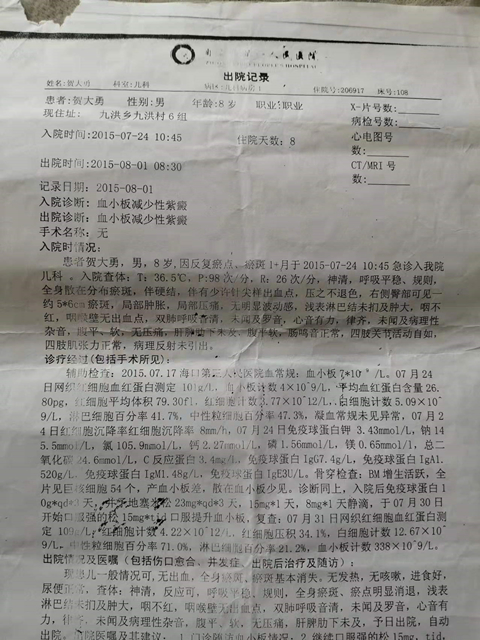 出院记录
姓名:贺大勇 科室:儿科 住院号:206917 床号:108
患者:贺大勇 性别:男 年龄:8岁 职业:职业
现住址: 九洪乡九洪村6组
X-片号数:
病检号数:
入院时间:2015-07-24 10:45 住院天数:8
心电图号
数:
出院时间:2015-08-01 08:30
CT/MRI 号
数:
记录日期: 2015-08-01
入院诊断: 血小板减少性紫癜
出院诊断: 血小板减少性紫癜
手术名称: 无
入院时情况:
患者贺大勇, 男, 8岁,因反复瘀点、瘀斑1+月于2015-07-24 10:45急诊入我院
儿科 。入院查体: T: 36.5℃, P:98次/分, R: 26次/分, 神清, 呼吸平稳、规则,
全身散在分布瘀斑, 伴硬结, 伴有少许针尖样出血点, 压之不退色, 右侧臀部可见一
约5*6cm瘀斑, 局部肿胀, 局部压痛, 无明显波动感, 浅表淋巴结未扪及肿大, 咽不
红, 咽喉壁无出血点, 双肺呼吸音清, 未闻及罗音, 心音有力, 律齐, 未闻及病理性
杂音, 腹平、软, 无压痛, 肝脾肋下未及, 肠鸣音正常, 四肢关节活动自如,
四肢肌张力正常, 病理反射未引出。
诊疗经过(包括手术所见):
辅助检查: 2015.07.17 海口第三人民医院血常规: 血小板 07月24
日网织红细胞血红蛋白测定 101g/L, 血小板计数 4×10^9/L, 平均血红蛋白含量 26.
80pg, 红细胞平均体积 79.30fl, 红细胞计数 3.77×10^12/L, 白细胞计数 5.09×10^
9/L, 淋巴细胞百分率 41.7%, 中性粒细胞百分率 47.3%, 凝血常规未见异常, 07月2
4日红细胞沉降率红细胞沉降率 8mm/h, 07月24日免疫球蛋白钾 3.43mmol/L, 钠14
5.5mmol/L, 氯 105.9mmol/L, 钙 2.27mmol/L, 磷 1.56mmol/L, 镁 0.65mmol/l, 总二
氧化碳 24.6mmol/L, C反应蛋白 3.4mg/L, 免疫球蛋白 IgG7.4g/L, 免疫球蛋白 IgA1.
520g/L, 免疫球蛋白 IgM1.48g/L, 免疫球蛋白 IgE3U/L。骨穿检查: BM增生活跃, 全
片见巨核细胞54个, 产血小板差, 散在血小板少见。诊断同上, 入院后免疫球蛋白1
0g*qd*3 天, 地塞米松 23mg*qd*3 天, 15mg*1天, 8mg*1天静滴, 于07月30日
开始口服强的松 15mg*tid 口服提升血小板, 复查: 07月31日网织红细胞血红蛋白测
定 109g/L, 红细胞计数 4.22×10^12/L, 红细胞压积 34.1%, 白细胞计数 12.67×10^
9/L, 中性粒细胞百分率 71.0%, 淋巴细胞百分率 21.2%, 血小板计数 338×10^9/L。
出院情况及医嘱(包括伤口愈合、并发症、出院后治疗及随访):
现患儿一般情况可, 无出血, 全身瘀斑、瘀斑基本消失, 无发热, 无咳嗽, 进食好,
尿便正常, 查体: 神清, 反应可, 呼吸平稳、规则, 全身瘀斑、瘀点明显消退, 浅表
淋巴结未扪及肿大, 咽不红, 咽喉壁无出血点, 双肺呼吸音清, 未闻及罗音, 心音有
力, 律齐, 未闻及病理性杂音, 腹平、软, 无压痛, 肝脾肋下未及, 予日出院, 自动
出院。出院医嘱及其建议: 1.门诊随访血小板情况; 2.继续口服强的松 15mg, tid,